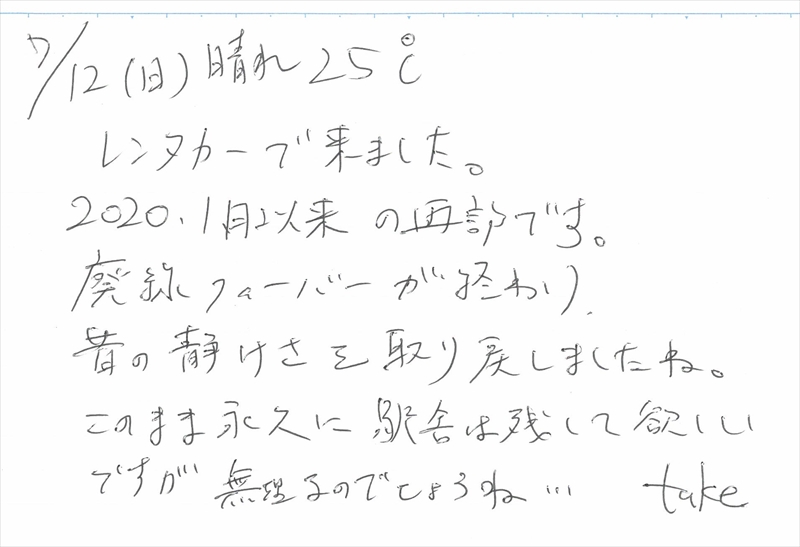 7/12(日)晴れ 25℃
レンタカーで来ました。
2020.1月以来の再訪です。
廃線フィーバーが終わり、
昔の静けさを取り戻しましたね。
このまま永久に駅舎は残して欲しい
ですが無理なのでしょうね…  take